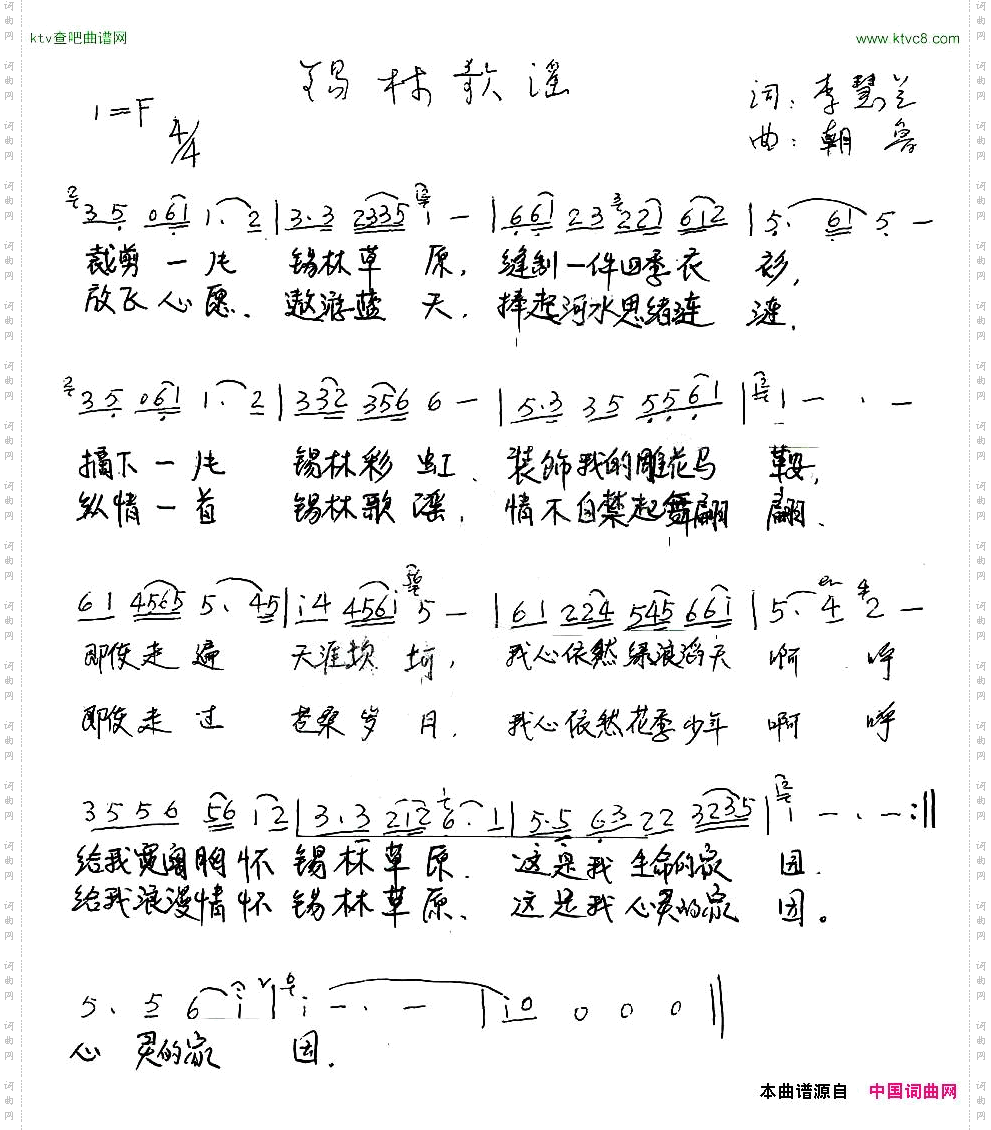 ktv查吧曲谱网
www.ktvc8.com
锡林歌谣
1=F 4/4
词：李慧兰
曲：朝鲁
3 5 0 6 1 1· 2 | 3·3 2 3 3 5 1 - | 6 6 1 2 3 2 2 1 6 1 2 | 5· 6 1 5 -
裁剪一片 锡林草原，缝制一件四季衣衫，
放飞心愿、遨游蓝天，捧起河水思绪涟涟，
3 5 0 6 1 1· 2 | 3 3 2 3 5 6 6 - | 5·3 3 5 5 5 6 1 | 1 - · -
摘下一片 锡林彩虹、装饰我的雕花马鞍，
纵情一首 锡林歌谣，情不自禁起舞翩翩、
6 1 4 5 6 5 5· 4 5 | i 4 4 5 6 i 5 - | 6 1 2 2 4 5 4 5 6 6 i | 5· 4 2 -
即使走遍 天涯坎坷，我心依然绿浪滔天 啊 呼
即使走过 苍桑岁月，我心依然花季少年 啊 呼
3 5 5 6 5 6 i 2 | 3·3 2 1 2 6· 1 | 5·5 6 3 2 2 3 2 3 5 | 1 - · - :||
给我宽阔胸怀 锡林草原．这是我 生命的家园．
给我浪漫情怀 锡林草原、这是我 心灵的家园。
5· 5 6 i | i - · - | i 0 0 0 0 ||
心 灵的家 园．
本曲谱源自 中国词曲网